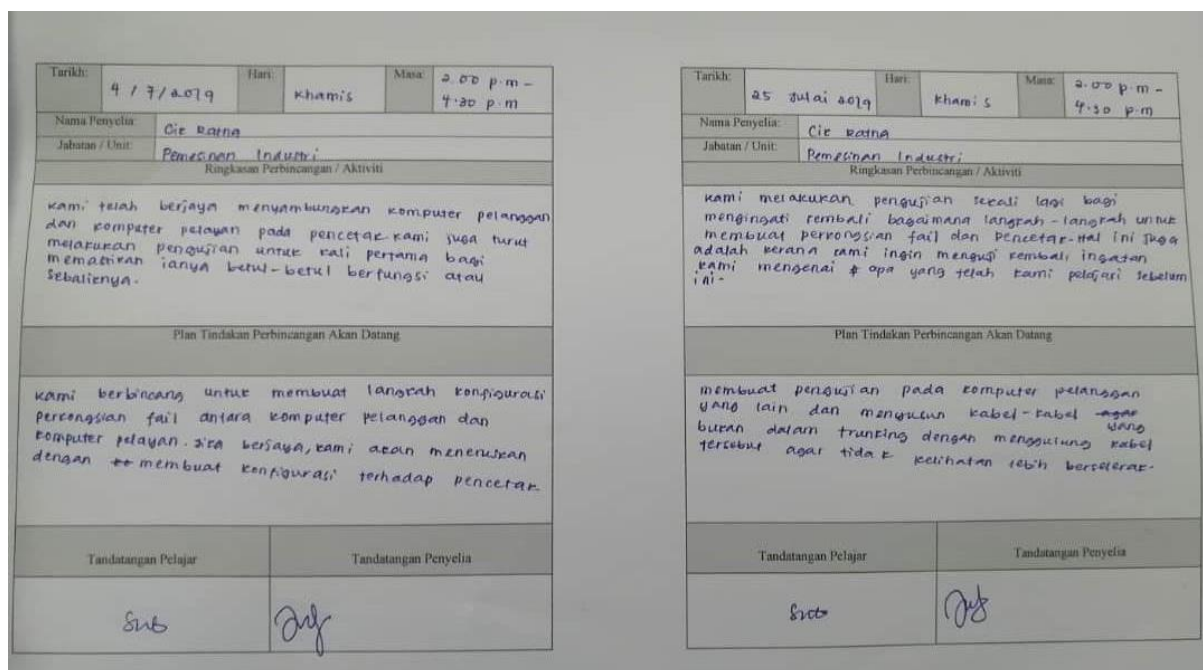 Tarikh: 4 / 7 / 2019 Hari: Khamis Masa: 2.00 p.m -
4.30 p.m
Nama Penyelia: Cik Ratna
Jabatan / Unit: Pemesinan Industri
Ringkasan Perbincangan / Aktiviti
Kami telah berjaya menyambungkan komputer pelanggan
dan komputer pelayan pada pencetak. Kami juga turut
melakukan pengujian untuk kali pertama bagi
memastikan ianya betul-betul berfungsi atau
sebaliknya.
Plan Tindakan Perbincangan Akan Datang
Kami berbincang untuk membuat langkah konfigurasi
perkongsian fail antara komputer pelanggan dan
komputer pelayan. Jika berjaya, kami akan meneruskan
dengan membuat konfigurasi terhadap pencetak
Tandatangan Pelajar Tandatangan Penyelia
Tarikh: 25 Julai 2019 Hari: Khamis Masa: 2.00 p.m -
4.30 p.m
Nama Penyelia: Cik Ratna
Jabatan / Unit: Pemesinan Industri
Ringkasan Perbincangan / Aktiviti
Kami melakukan pengujian sekali lagi bagi
mengingati kembali bagaimana langkah-langkah untuk
membuat perkongsian fail dan pencetak. Hal ini juga
adalah kerana kami ingin menguji kembali ingatan
kami mengenai apa yang telah kami pelajari sebelum
ini.
Plan Tindakan Perbincangan Akan Datang
membuat pengujian pada komputer pelanggan
yang lain dan menyusun kabel-kabel agar yang
bukan dalam trunking dengan menggulung kabel
tersebut agar tidak kelihatan lebih berselerak.
Tandatangan Pelajar Tandatangan Penyelia